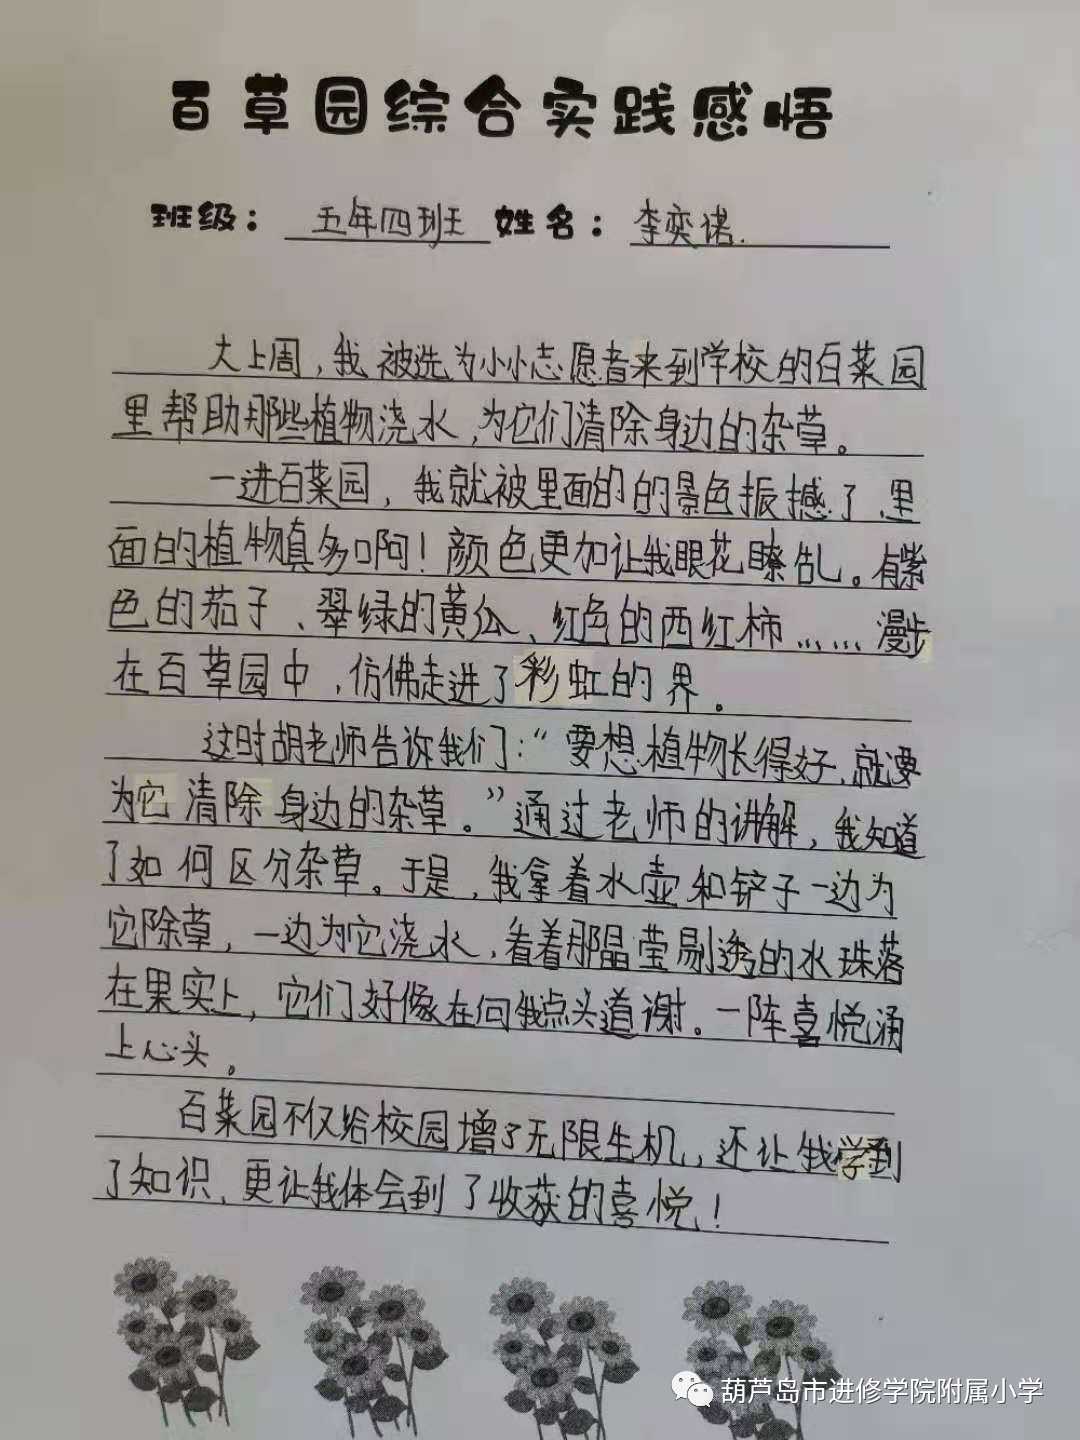 百草园综合实践感悟
班级： 五年四班 姓名： 李奕诺.
大上周，我被选为小小志愿者来到学校的百菜园
里帮助那些植物浇水，为它们清除身边的杂草。
一进百菜园，我就被里面的的景色振撼了，里
面的植物真多啊！颜色更加让我眼花瞭乱。有紫
色的茄子、翠绿的黄瓜、红色的西红柿……漫步
在百草园中，仿佛走进了彩虹的界。
这时胡老师告诉我们：“要想植物长得好，就要
为它清除身边的杂草。”通过老师的讲解，我知道
了如何区分杂草。于是，我拿着水壶和铲子一边为
它除草，一边为它浇水，看着那晶莹剔透的水珠落
在果实上，它们好像在向我点头道谢。一阵喜悦涌
上心头。
百菜园不仅给校园增了无限生机，还让我学到
了知识，更让我体会到了收获的喜悦！
葫芦岛市进修学院附属小学